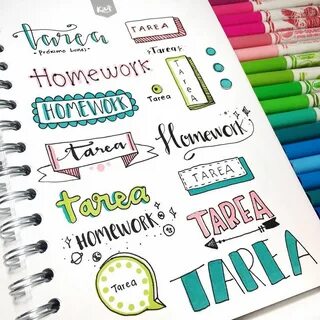 tarea
Próximo Lunes
TAREA
TAREA
HOMEWORK
Tarea
Tarea
HOMEWORK
Tarea
Homework
TAREA
tarea
TAREA
HOMEWORK
Tarea
TAREA